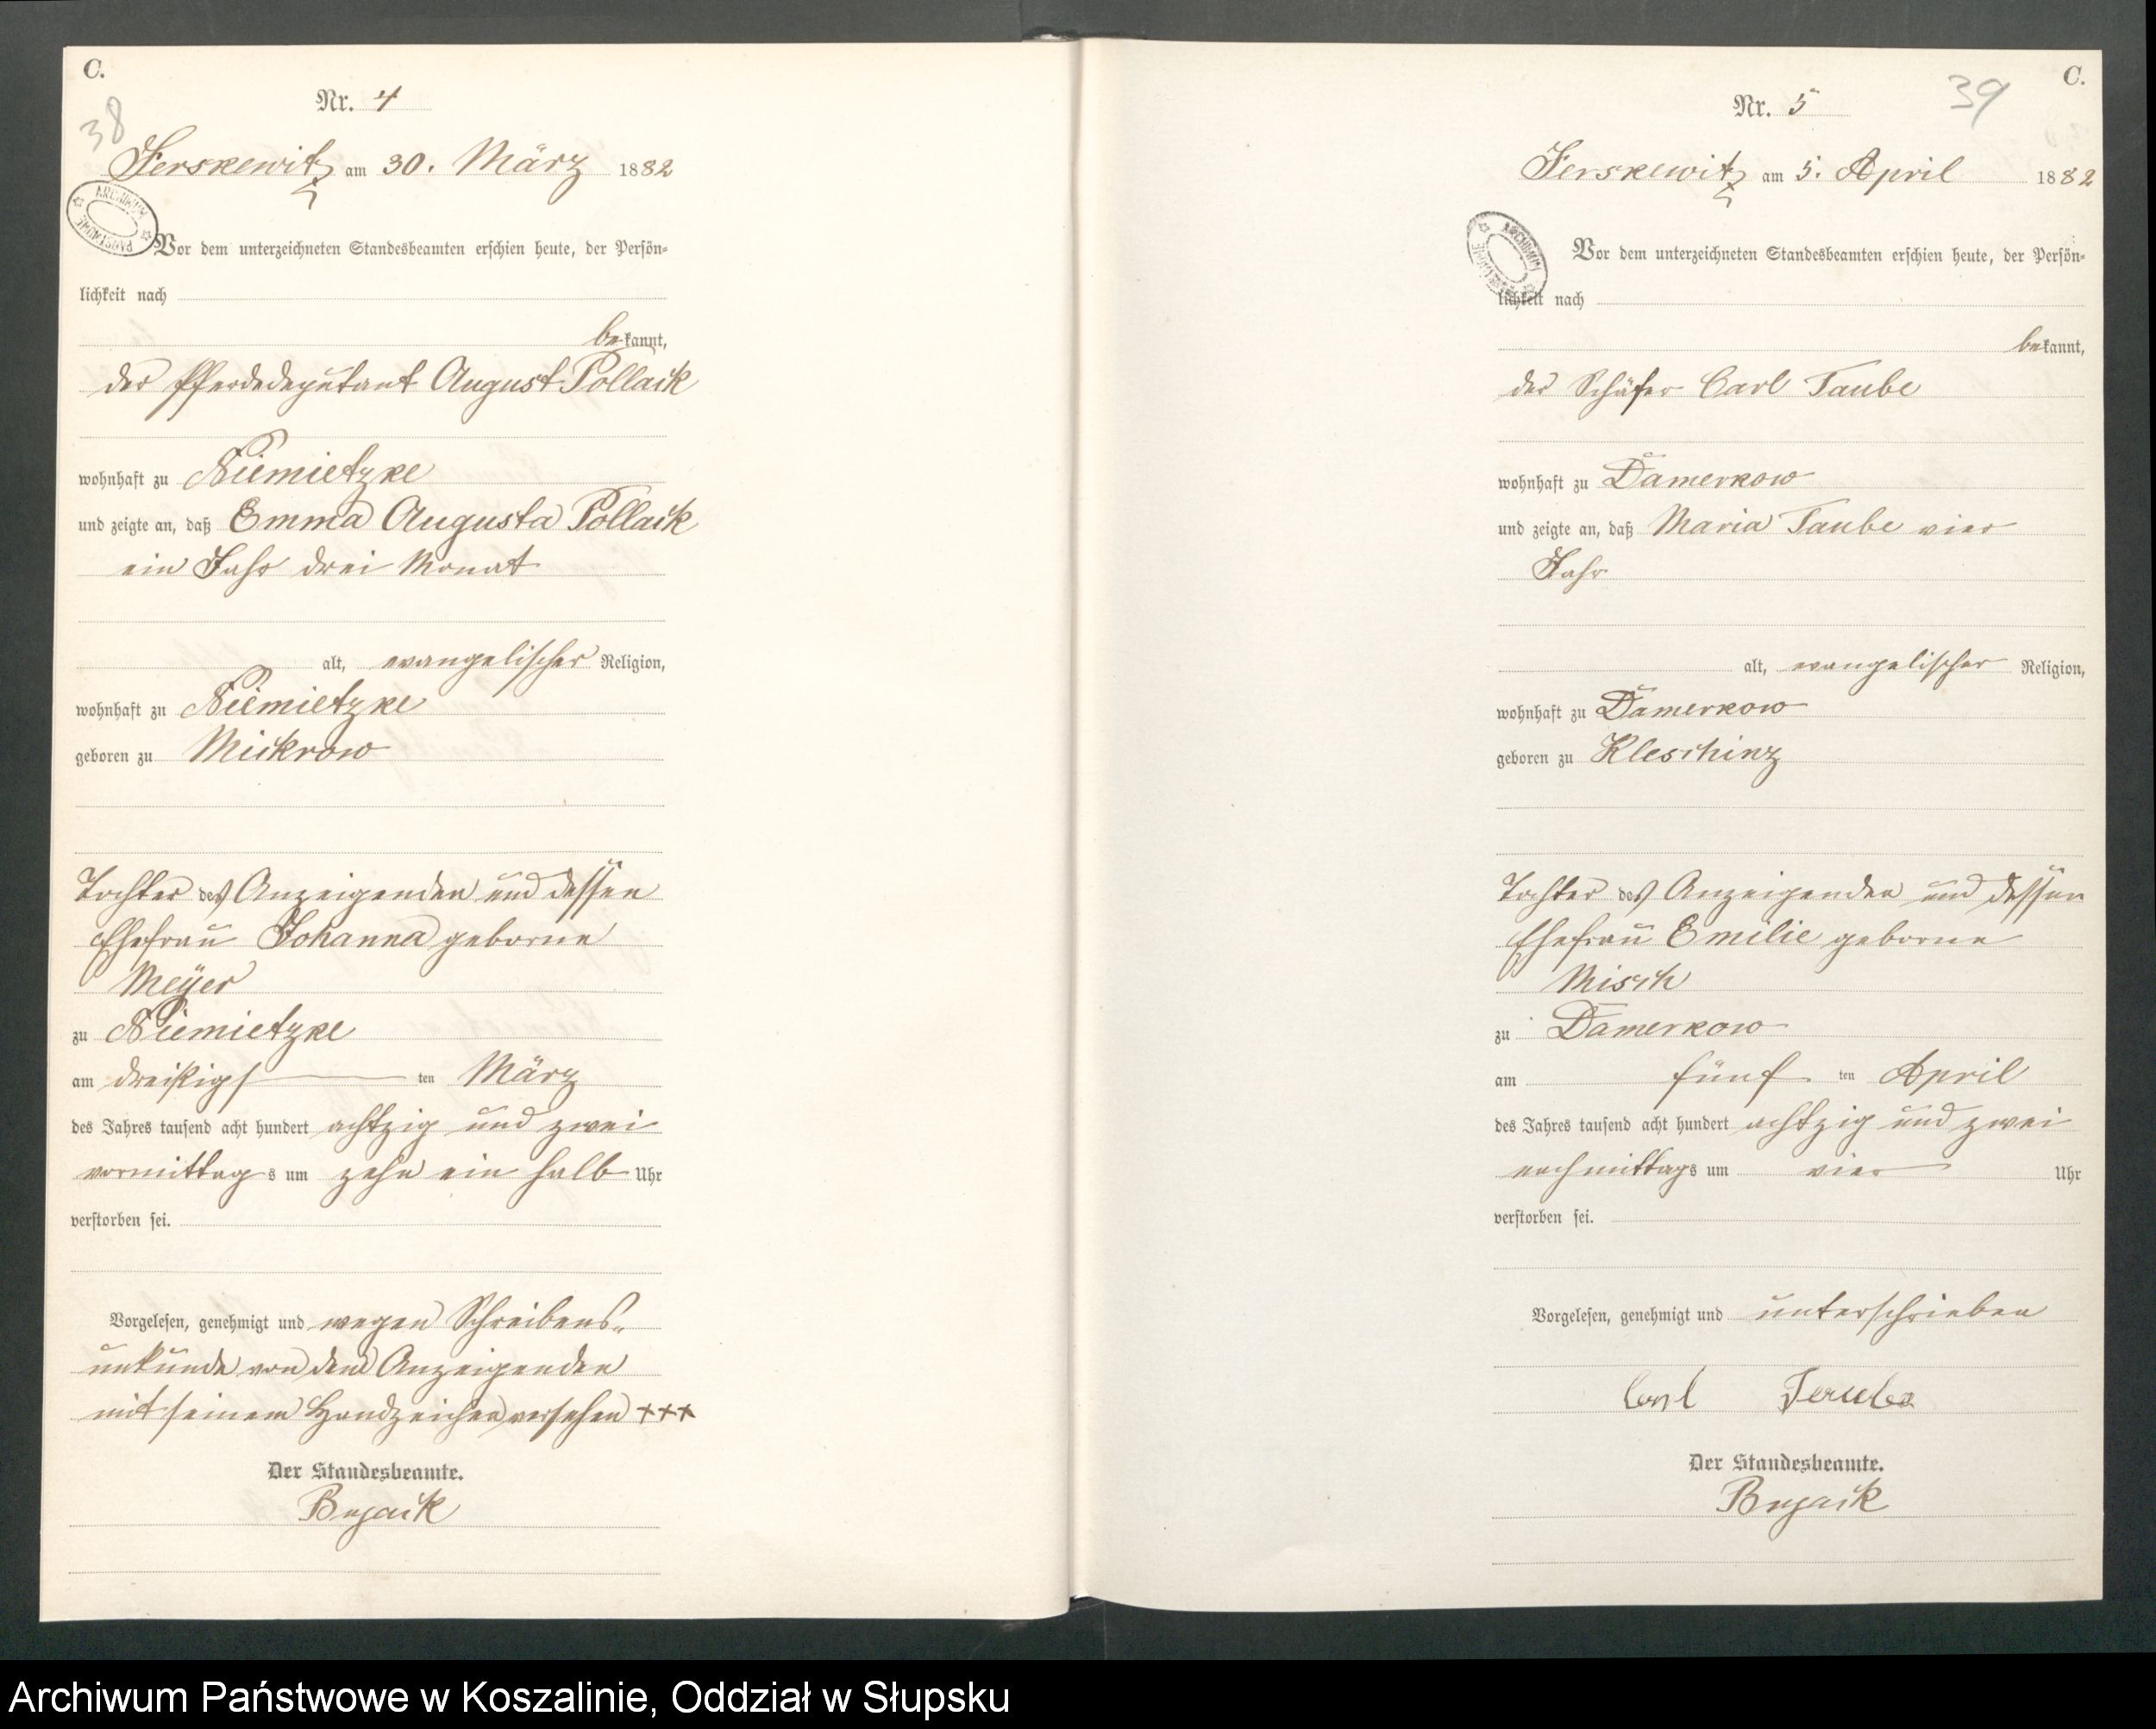 C.
38
Nr. 4
Jerskewitz am 30. März 1882
ARCHIWUM PAŃSTWOWE
Vor dem unterzeichneten Standesbeamten erschien heute, der Persön=
lichkeit nach
bekannt,
der Pferdedeputant August Pollack
wohnhaft zu Niemietzke
und zeigte an, daß Emma Augusta Pollack
ein Jahr drei Monat
alt, evangelischer Religion,
wohnhaft zu Niemietzke
geboren zu Mickrow
Tochter des Anzeigenden und dessen
Ehefrau Johanna geborne
Meyer
zu Niemietzke
am dreißigsten März
des Jahres tausend acht hundert achtzig und zwei
vormittags um zehn ein halb Uhr
verstorben sei.
Vorgelesen, genehmigt und wegen Schreibens-
unkunde von dem Anzeigenden
mit seinem Handzeichen versehen +++
Der Standesbeamte.
Bujack
C.
39
Nr. 5
Jerskewitz am 5. April 1882
ARCHIWUM PAŃSTWOWE
Vor dem unterzeichneten Standesbeamten erschien heute, der Persön=
lichkeit nach
bekannt,
der Schäfer Carl Taube
wohnhaft zu Damerkow
und zeigte an, daß Maria Taube vier
Jahr
alt, evangelischer Religion,
wohnhaft zu Damerkow
geboren zu Kleschinz
Tochter des Anzeigenden und dessen
Ehefrau Emilie geborne
Misch
zu Damerkow
am fünften April
des Jahres tausend acht hundert achtzig und zwei
nachmittags um vier Uhr
verstorben sei.
Vorgelesen, genehmigt und unterschrieben
Carl
Der Standesbeamte.
Bujack
Archiwum Państwowe w Koszalinie, Oddział w Słupsku